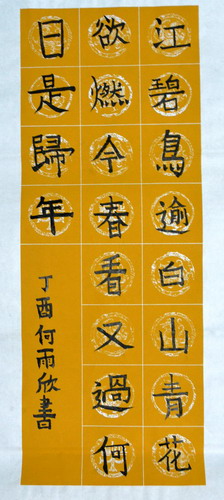 江碧鳥逾白山青花
欲燃今春看又過何
日是歸年
丁酉何雨欣書